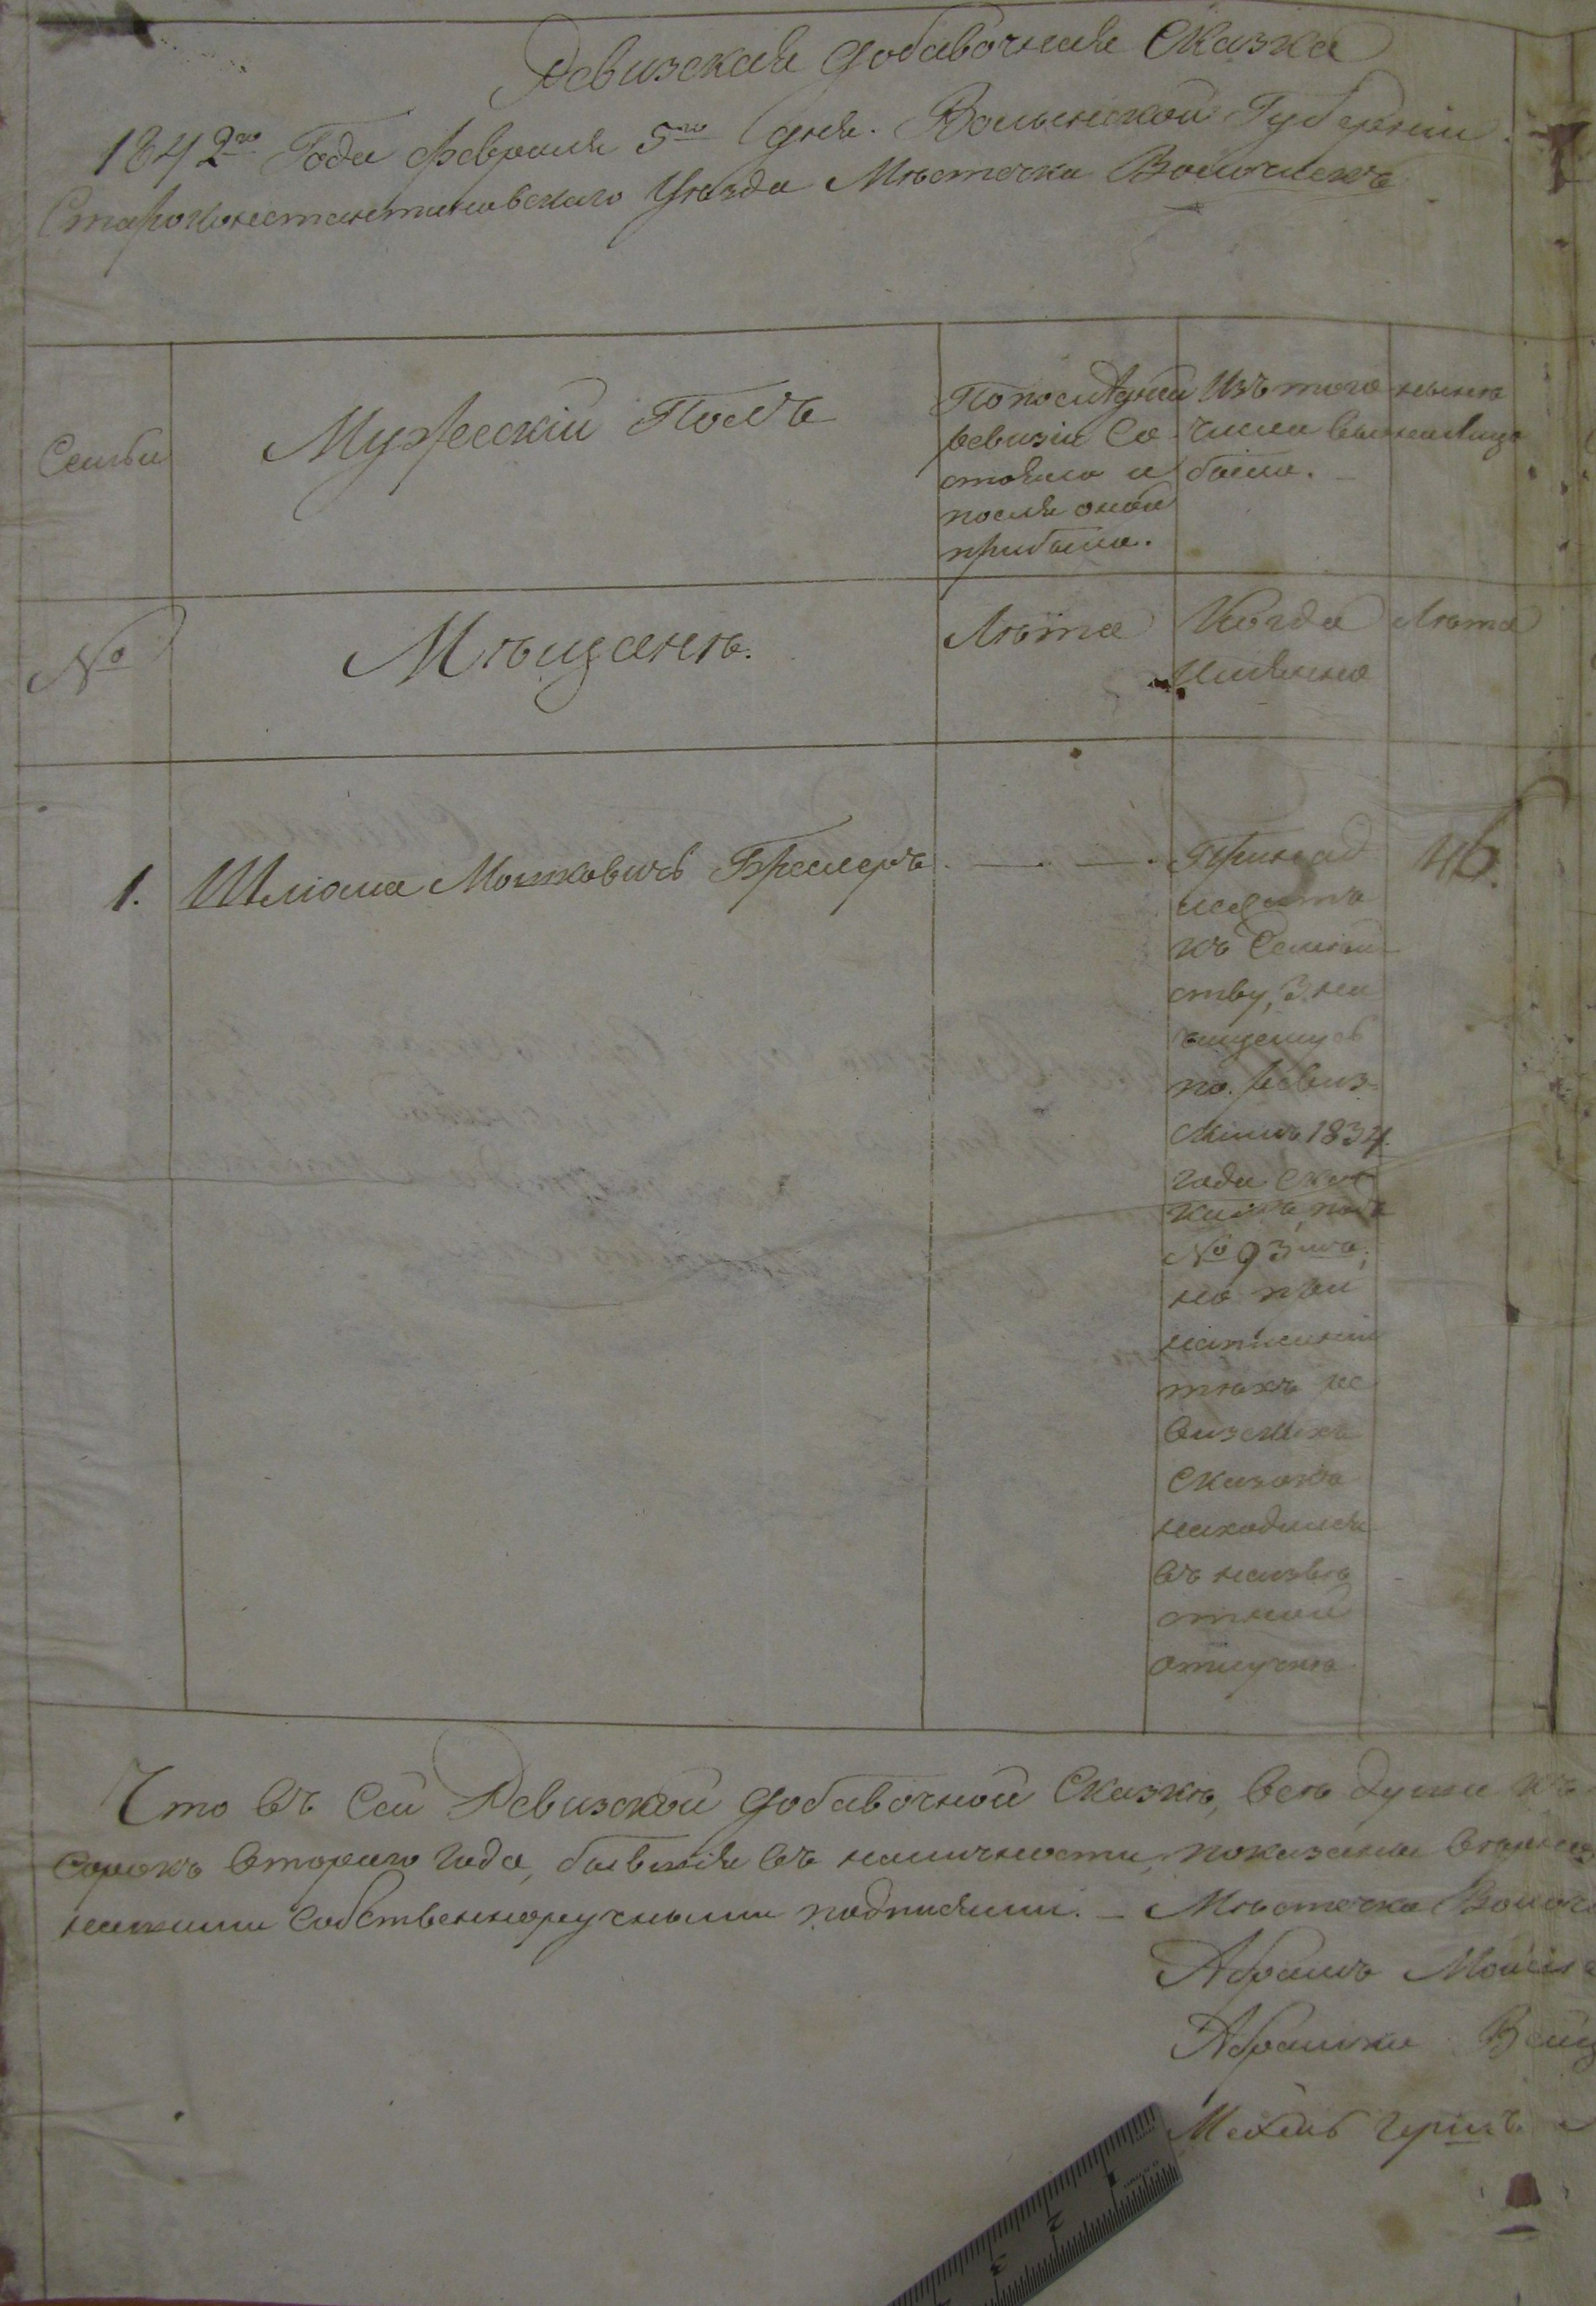 Ревизская добавочная Сказка
1842го Года февраля 5го дня. Волынской Губерніи
Староконстантиновскаго Уезда Мѣстечка Волочискъ
Семьи
Мужескій Полъ
По последней
ревизіи Со
стояло и
после оной
прибыло.
Изъ того
числа вы
было.
ныне
на лицо
№
Мѣщане.
Лѣта
Когда
имянно
Лѣта
1. Шліома Мошковичъ Бреслеръ
Принад
лежитъ
къ Семей
ству, зна
чущемусь
по ревиз
скимъ 1834.
года сказ
камъ подъ
№ 93мъ,
но при
написаніи
тѣхъ ре
визскихъ
Сказокъ
находился
въ неизвѣ
стной
отлучкѣ
46.
Что въ Сей Ревизской добавочной Сказкѣ, всѣ души къ
Сорокъ втораго года, бывшія въ наличности, показаны
нашими Собственноручными подписями. – Мѣстечка Волоч
Абрамъ
Абрамко
1
2
3